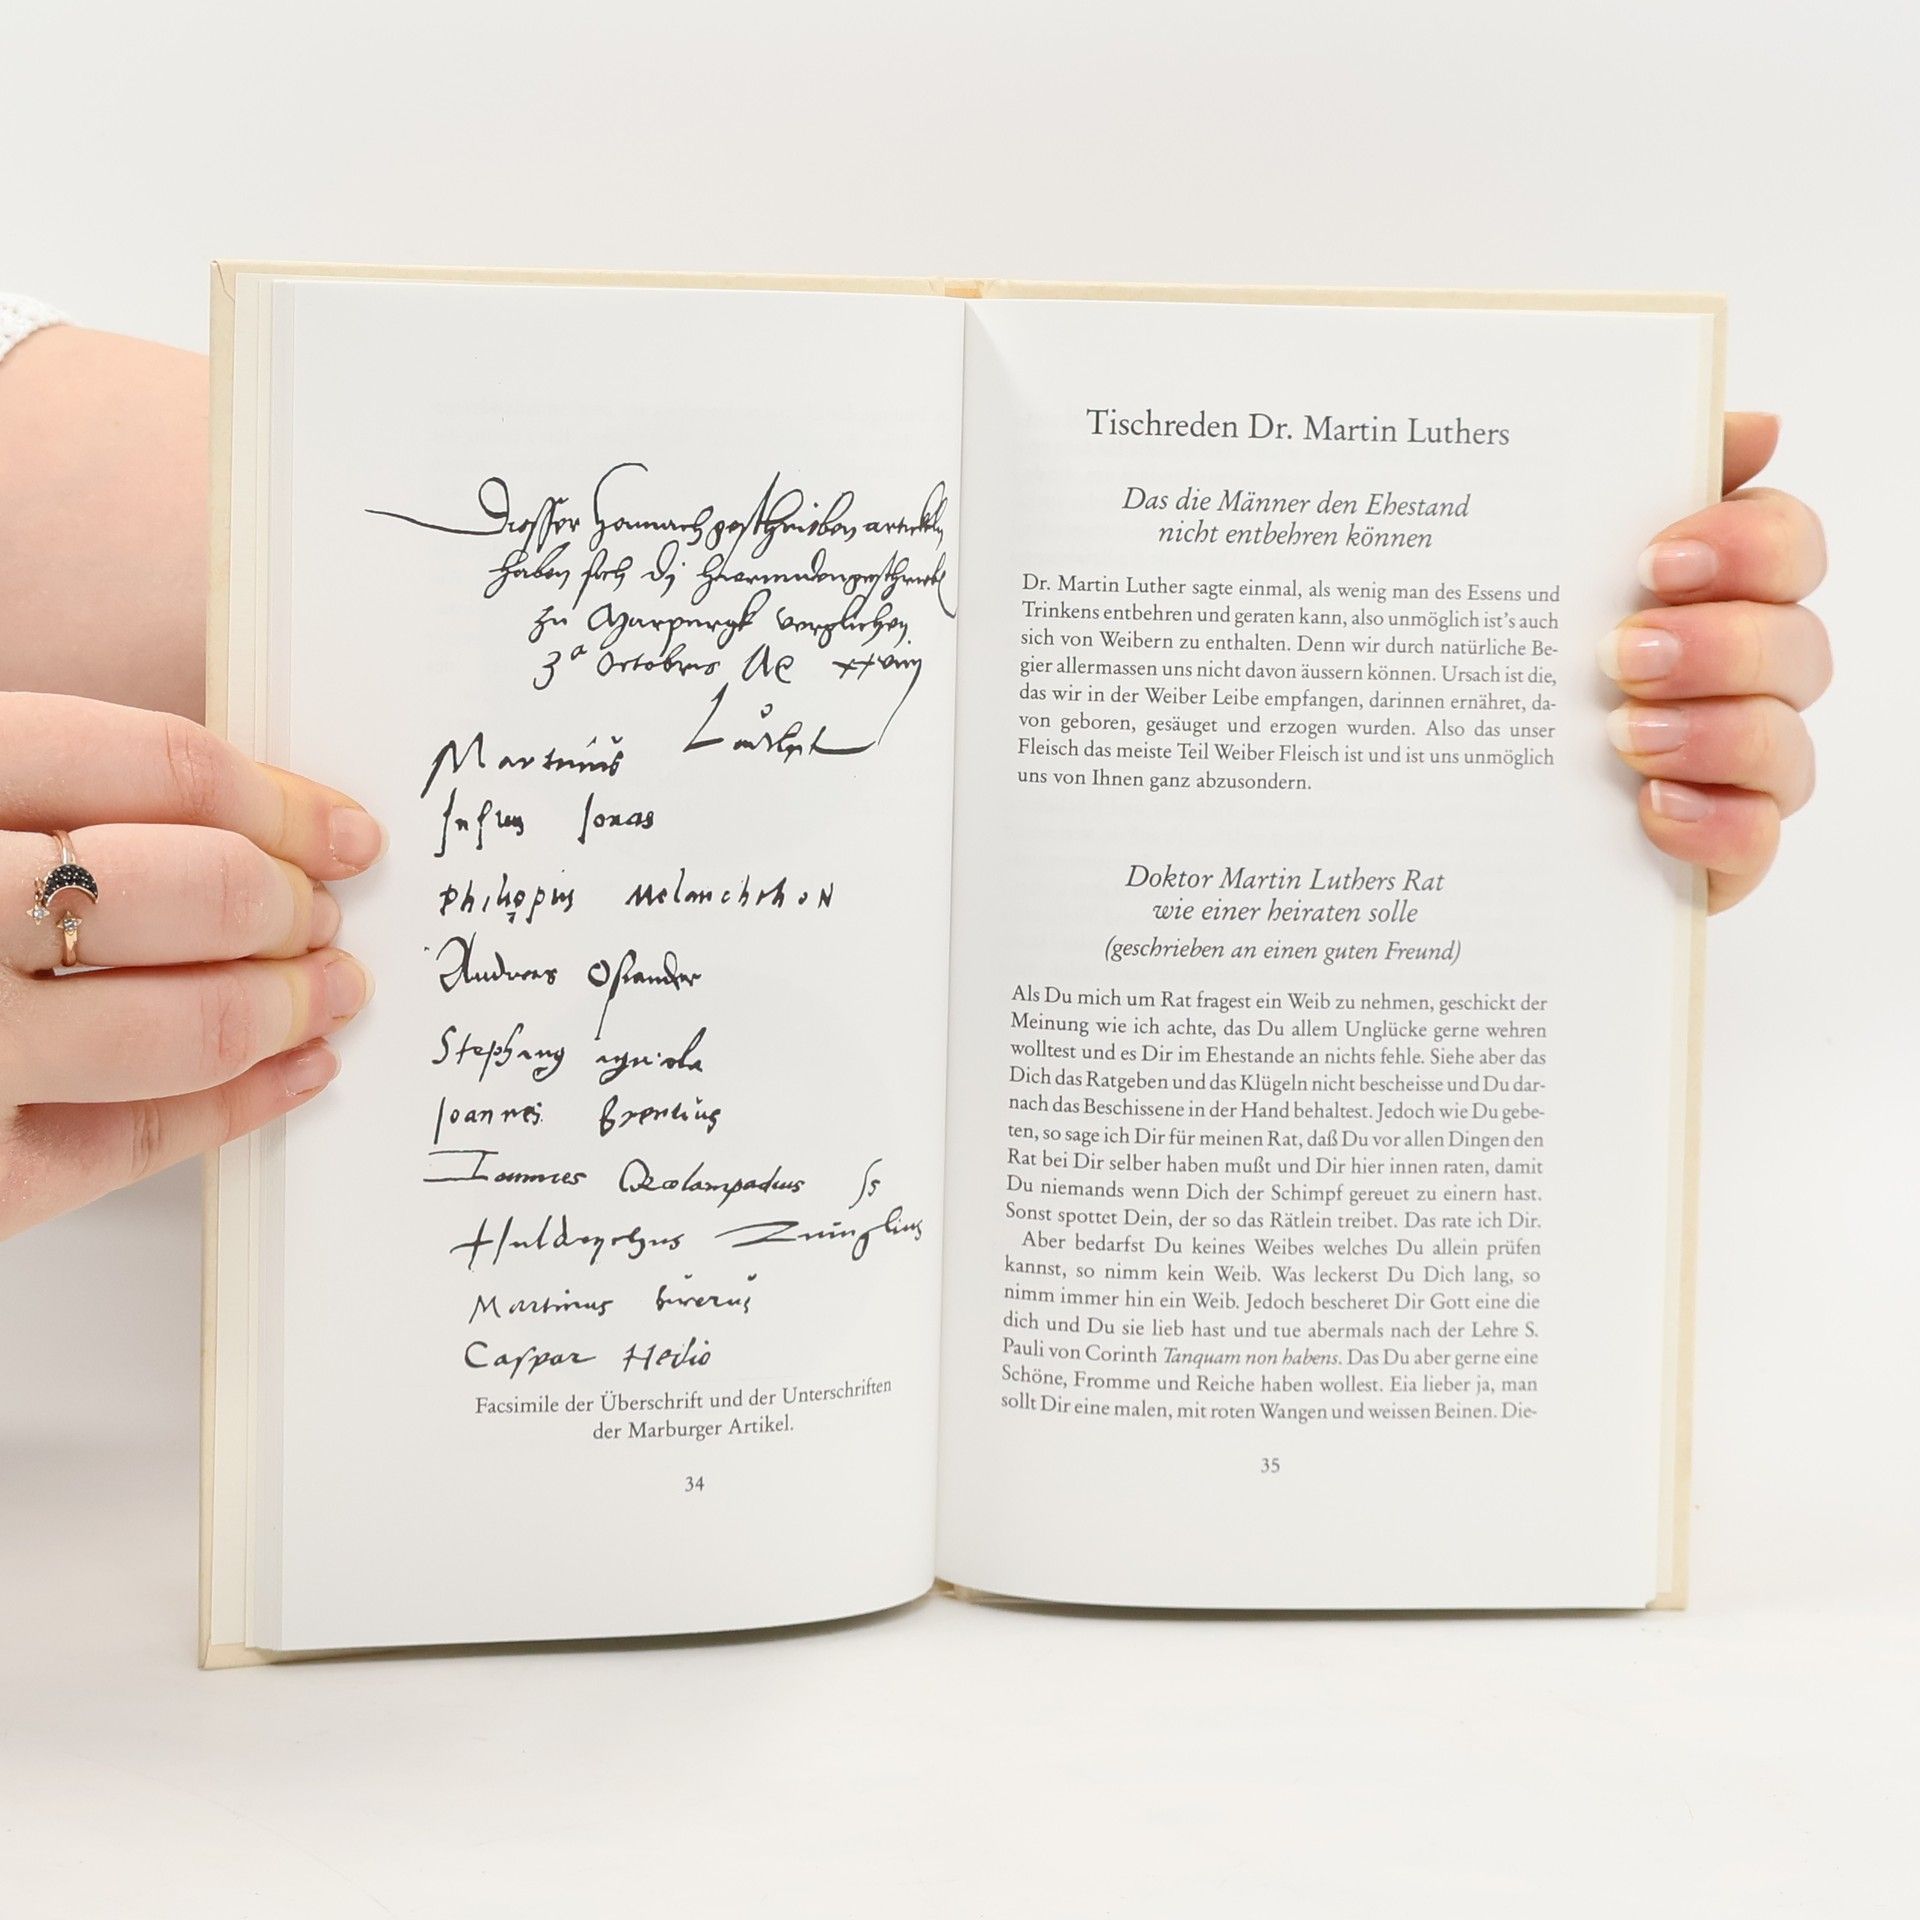 Martinus
Jonas
Philippus Melanchthon
Andreas Osiander
Stephanus agricola
Joannes Brentius
Ioannes Oecolampadius ss
Huldrychus Zuinglius
Martinus Bucerus
Caspar Hedio
Facsimile der Überschrift und der Unterschriften
der Marburger Artikel.
34
Tischreden Dr. Martin Luthers
Das die Männer den Ehestand
nicht entbehren können
Dr. Martin Luther sagte einmal, als wenig man des Essens und
Trinkens entbehren und geraten kann, also unmöglich ist's auch
sich von Weibern zu enthalten. Denn wir durch natürliche Be-
gier allermassen uns nicht davon äussern können. Ursach ist die,
das wir in der Weiber Leibe empfangen, darinnen ernähret, da-
von geboren, gesäuget und erzogen wurden. Also das unser
Fleisch das meiste Teil Weiber Fleisch ist und ist uns unmöglich
uns von Ihnen ganz abzusondern.
Doktor Martin Luthers Rat
wie einer heiraten solle
(geschrieben an einen guten Freund)
Als Du mich um Rat fragest ein Weib zu nehmen, geschickt der
Meinung wie ich achte, das Du allem Unglücke gerne wehren
wolltest und es Dir im Ehestande an nichts fehle. Siehe aber das
Dich das Ratgeben und das Klügeln nicht bescheisse und Du dar-
nach das Beschissene in der Hand behaltest. Jedoch wie Du gebe-
ten, so sage ich Dir für meinen Rat, daß Du vor allen Dingen den
Rat bei Dir selber haben mußt und Dir hier innen raten, damit
Du niemands wenn Dich der Schimpf gereuet zu einern hast.
Sonst spottet Dein, der so das Rätlein treibet. Das rate ich Dir.
Aber bedarfst Du keines Weibes welches Du allein prüfen
kannst, so nimm kein Weib. Was leckerst Du Dich lang, so
nimm immer hin ein Weib. Jedoch bescheret Dir Gott eine die
dich und Du sie lieb hast und tue abermals nach der Lehre S.
Pauli von Corinth Tanquam non habens. Das Du aber gerne eine
Schöne, Fromme und Reiche haben wollest. Eia lieber ja, man
sollt Dir eine malen, mit roten Wangen und weissen Beinen. Die-
35